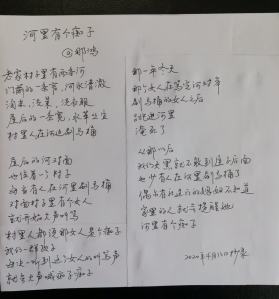 河里有个痴子
@耶鸿
老家村子里有两条河
门前的一条窄，河水清澈
淘米，洗菜，洗衣服
屋后的一条宽，水草丛生
村里人在河边刷马桶
屋后的河对面
也住着一个村子
每当有人在河里刷马桶
对面村子里有个女人
就开始大声叫骂
村里人都说那女人是个痴子
我们一群孩子
每次一听到这个女人的叫骂声
就会大声喊痴子痴子
那一年冬天
那个女人在骂完河对岸
刷马桶的女人之后
跳进河里
淹死了
从那以后
我们天黑就不敢到屋子后面
也少有人在河里刷马桶了
偶尔有
家里的人就会提醒她
河里有个痴子
2020年4月15日抄录